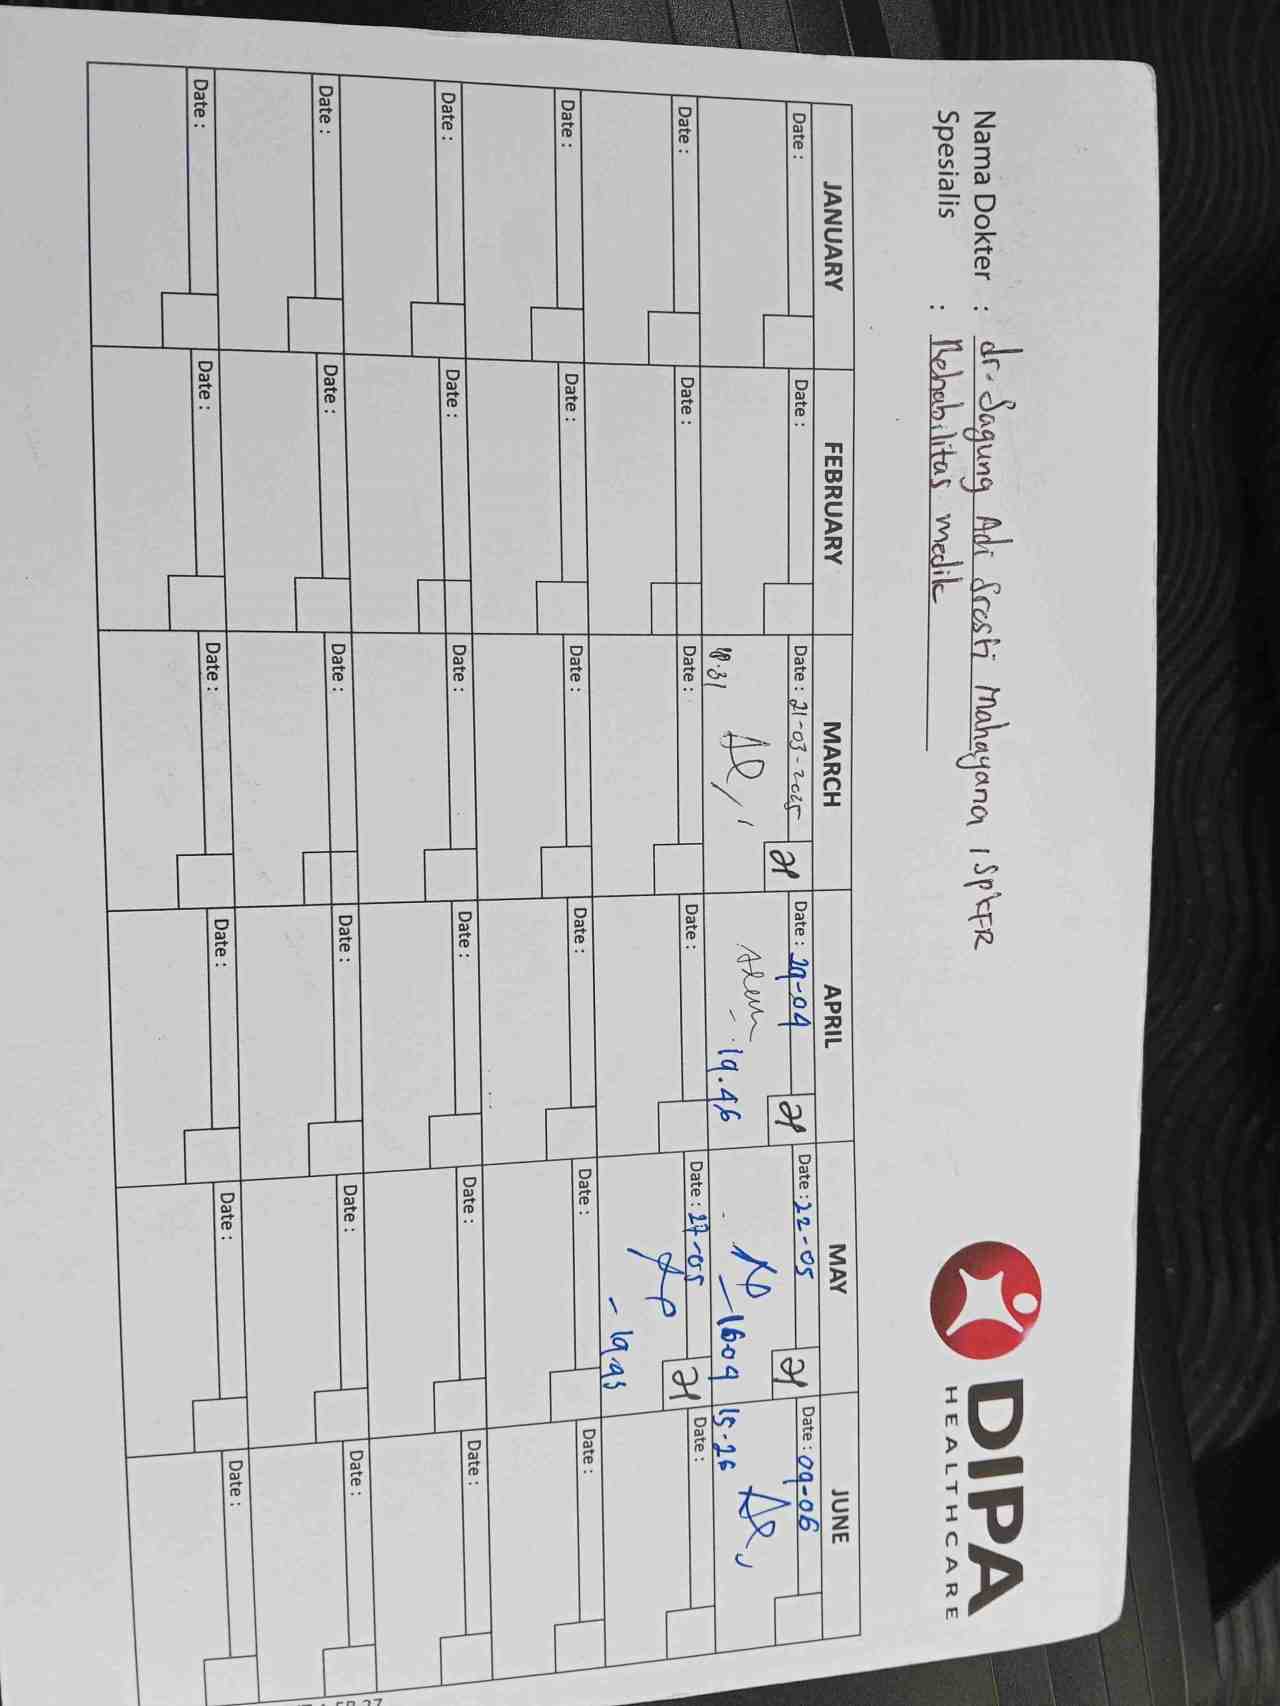 Nama Dokter : dr. Sagung Adi Sresti Mahayana , SpKFR
Spesialis : Rehabilitas medik
DIPA
HEALTHCARE
JANUARY FEBRUARY MARCH APRIL MAY JUNE
Date : Date : Date : 21-03-2025 Date : 29-04 Date : 22-05 Date : 09-06
19.46 1609 15-26
Date : Date : Date : Date : Date : 27-05 Date :
Date : Date : Date : Date : Date : Date :
Date : Date : Date : Date : Date : Date :
Date : Date : Date : Date : Date : Date :
Date : Date : Date : Date : Date : Date :